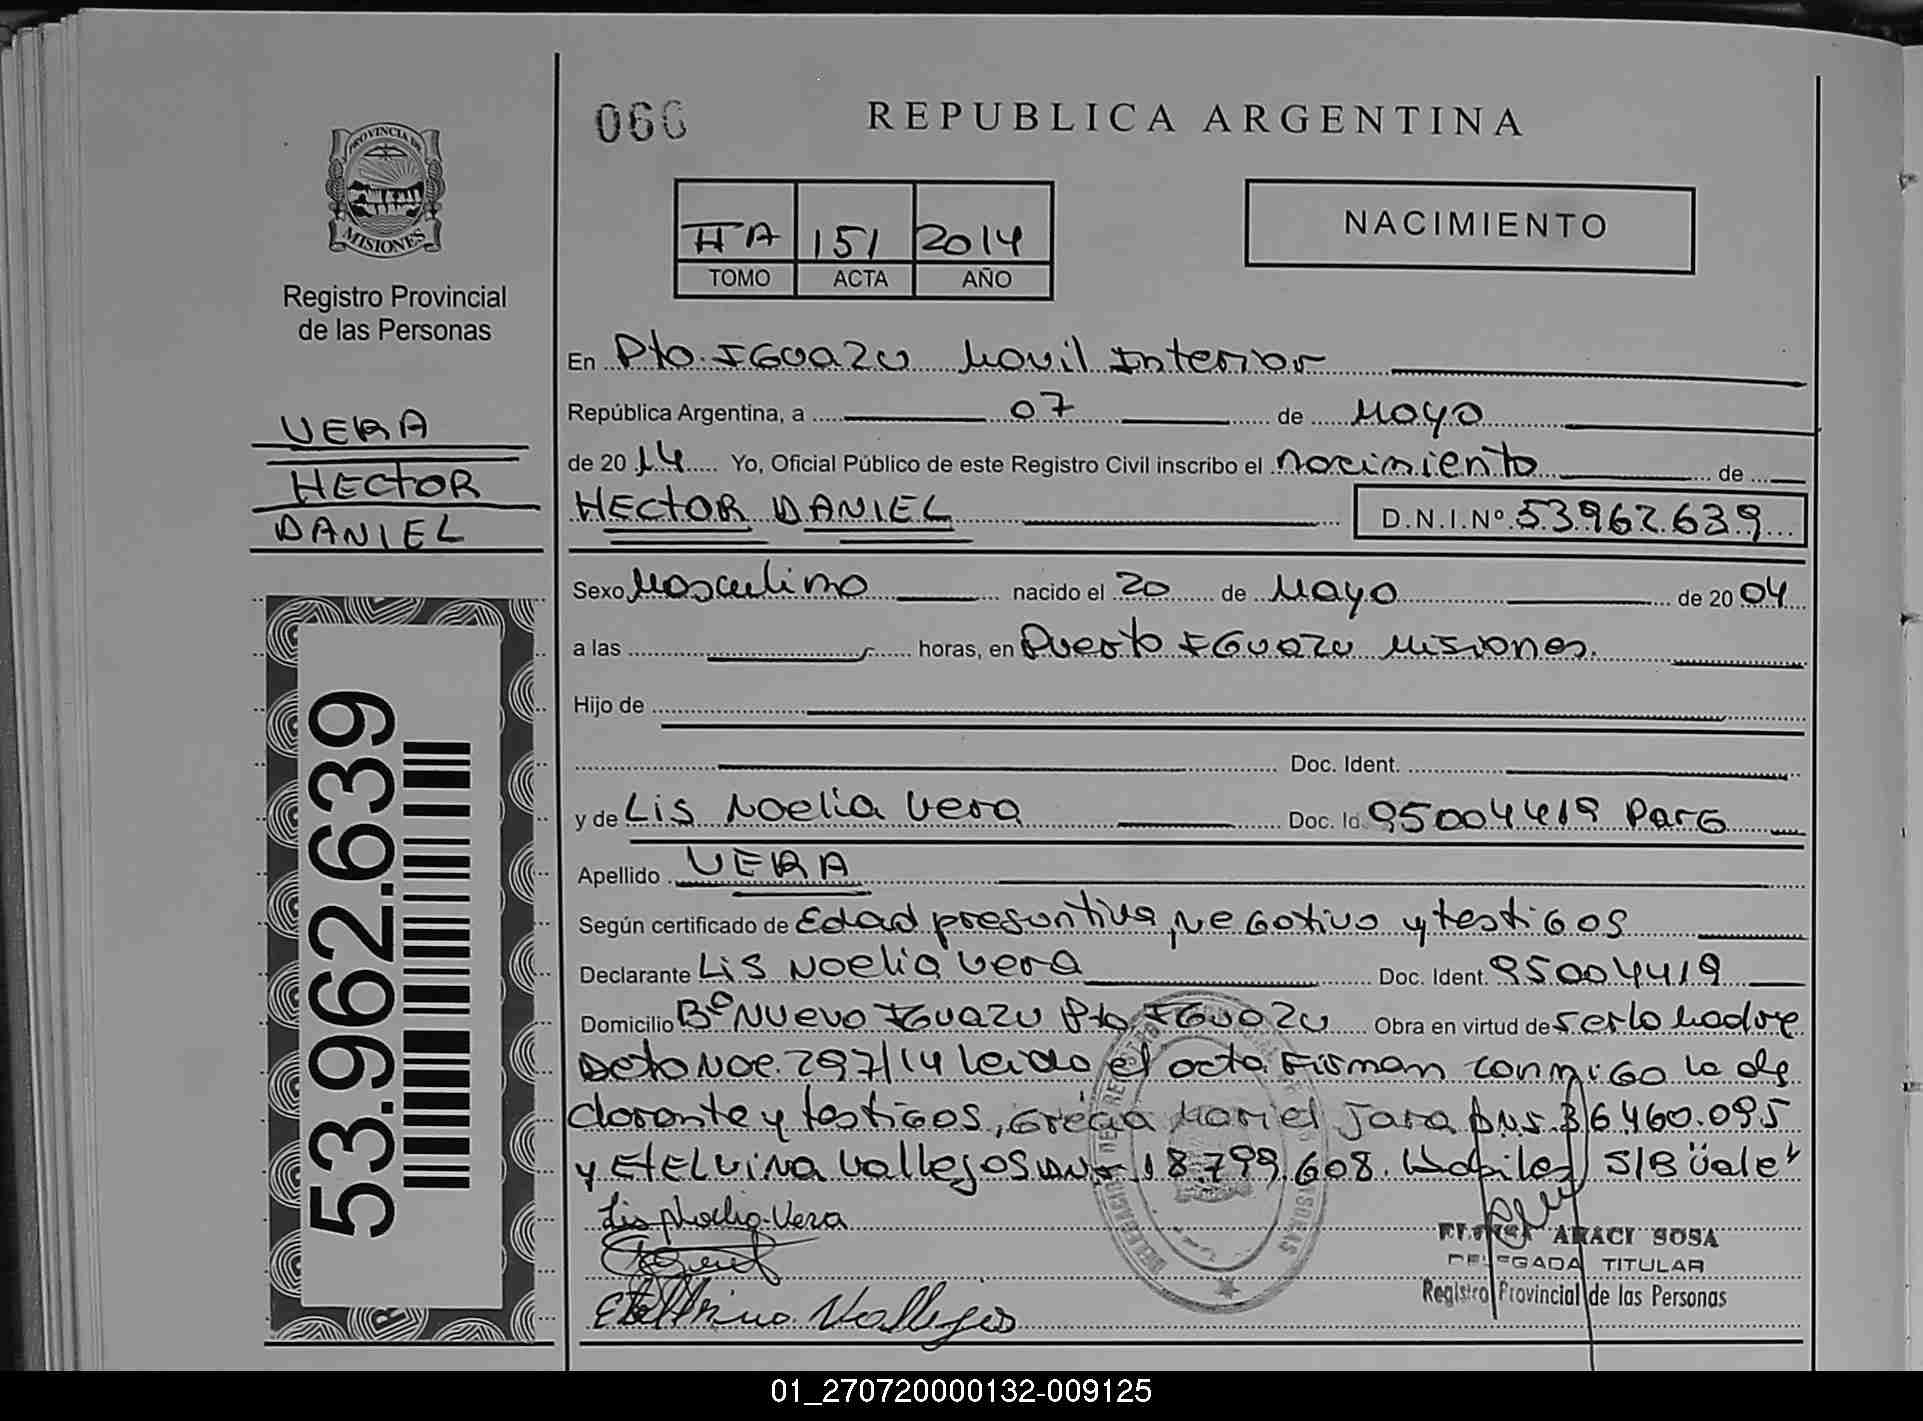 066
REPUBLICA ARGENTINA
PROVINCIA DE
MISIONES
Registro Provincial
de las Personas
IIA 151 2014
TOMO ACTA AÑO
NACIMIENTO
VERA
HECTOR
DANIEL
53.962.639
En Pto. IGUAZU Movil Interior
República Argentina, a 07 de Mayo
de 20 14 Yo, Oficial Público de este Registro Civil inscribo el nacimiento de
HECTOR DANIEL D.N.I.Nº 53.962.639
Sexo Masculino nacido el 20 de Mayo de 20 04
a las horas, en Puerto IGUAZU Misiones.
Hijo de
Doc. Ident.
y de Lis Noelia Vera Doc. Id 95004419 ParG
Apellido VERA
Según certificado de Edad presuntiva, NeGativo y testiGos
Declarante Lis Noelia Vera Doc. Ident. 95004419
Domicilio Bº NUevo IGUAZU Pto IGUAZU Obra en virtud de ser la Madre
297/14 leido el acta Firman conmiGo la de
clarante y testiGos, Mariel Jara DNI 36460.095
y EtELvina VallejosDNI 18.799.608. Habiles S/B Vale
Lis Noelia Vera
Vallejos
ARACI SOSA
DELEGADA TITULAR
Registro Provincial de las Personas
01_270720000132-009125